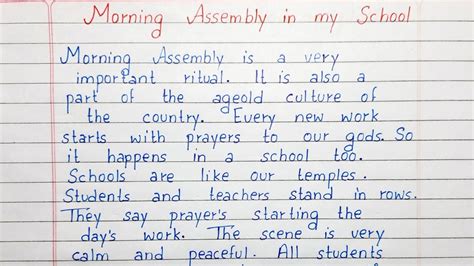 Morning Assembly in my School
Morning Assembly is a very
important ritual. It is also a
part of the ageold culture of
the country. Every new work
starts with prayers to our gods. So
it happens in a school too.
Schools are like our temples.
Students and teachers stand in rows.
They say prayer's starting the
day's work. The scene is very
calm and peaceful. All students